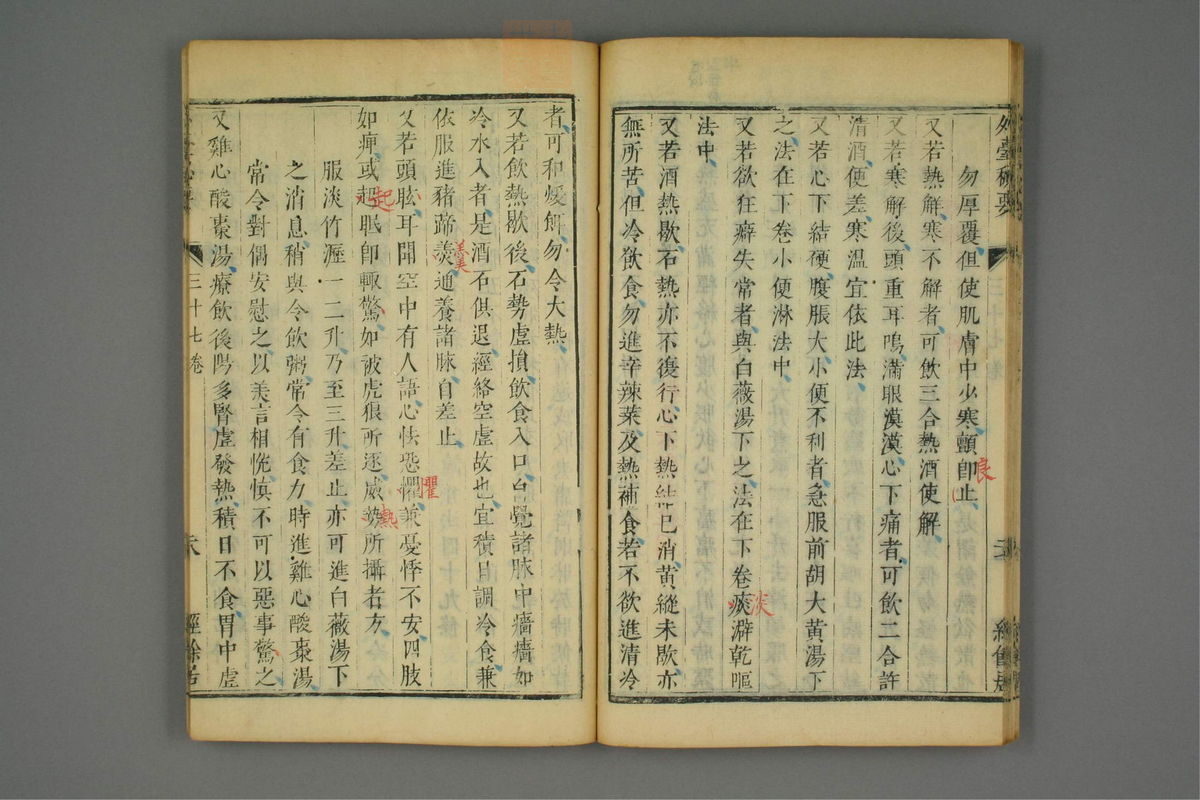 外臺秘要
勿厚覆但使肌膚中少寒顫卽止
良
又若熱解寒不解者可飲三合熱酒使解
又若寒解後頭重耳鳴滿眼漠漠心下痛者可飲二合許
清酒便差寒温宜依此法
又若心下結硬腹脹大小便不利者急服前胡大黃湯下
之法在下卷小便淋法中
又若欲狂癖失常者與白薇湯下之法在下卷痰澼乾嘔
淡
法中
又若酒熱歇石熱亦不復行心下熱結已消黃縱未歇亦
無所苦但冷飲食勿進辛辣菜及熱補食若不欲進清冷
者可和煖餌勿令大熱
又若飲熱歇後石勢虛損飲食入口㫁覺諸脉中𤺋𤺋如
冷水入者是酒石俱退經絡空虛故也宜積日調冷食兼
依服進豬蹄羹通養諸脉自差止
羹
又若頭眩耳聞空中有人語心怯恐懼兼憂悸不安四肢
懼
如痺或起眠卽輙驚如被虎狼所逐威勢所攝者方
起
熱
服淡竹瀝一二升乃至三升差止亦可進白薇湯下
之消息稍與令飲粥常令有食力時進雞心酸棗湯
常令對偶安慰之以美言相悦慎不可以惡事驚之
又雞心酸棗湯療飲後陽多腎虛發熱積日不食胃中虛
三十七卷
六
經餘居